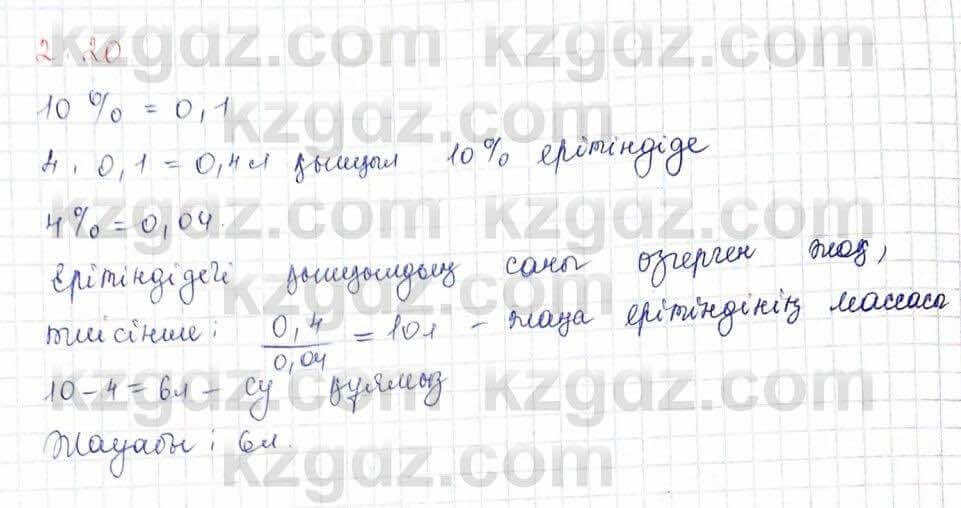 2.20
10 % = 0,1
4 · 0,1 = 0,4 л қышқыл 10% ерітіндіде
4% = 0,04.
Ерітіндідегі қышқылдың саны өзгерген жоқ,
тиісінше: 0,4/0,04 = 10л - жаңа ерітіндінің массасы
10 - 4 = 6л - су құямыз
Жауабы: 6л.
kzgdz.com kzgdz.com
kzgdz.com kzgdz.com
kzgdz.com kzgdz.com
kzgdz.com kzgdz.com
kzgdz.com kzgdz.com
kzgdz.com kzgdz.com